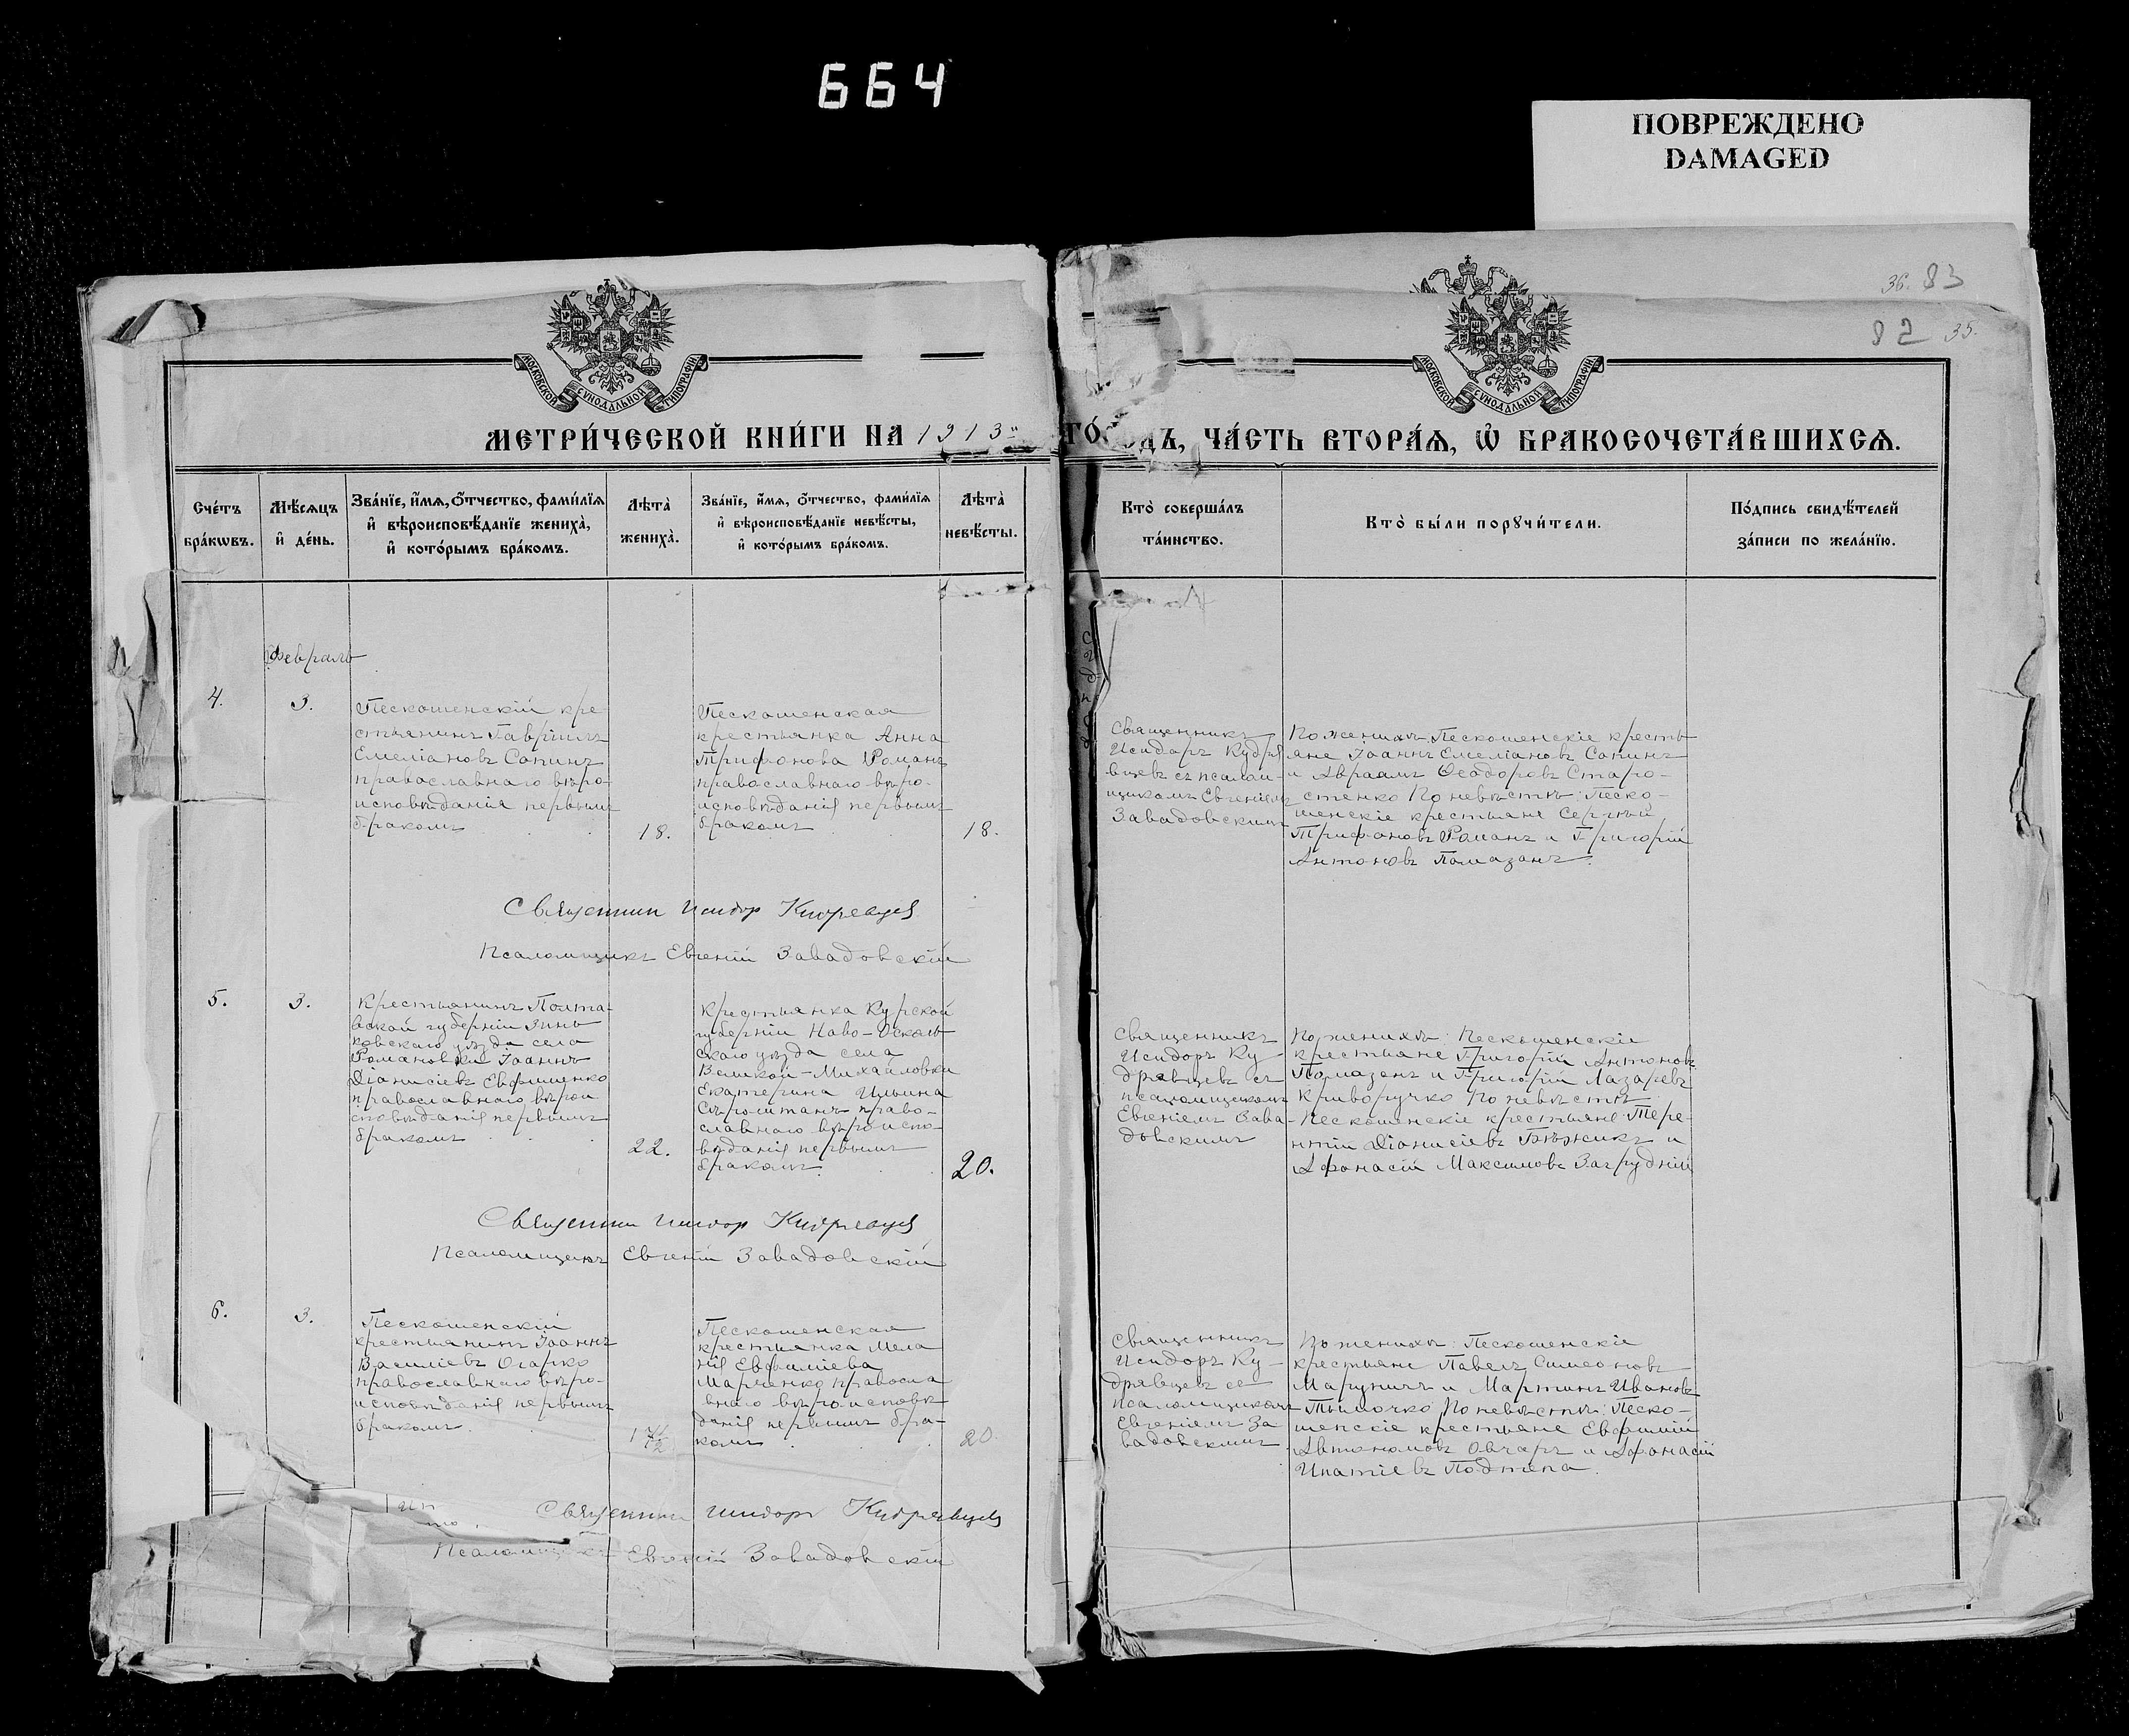 664
ПОВРЕЖДЕНО
DAMAGED
36. 83
82 35.
МОСКОВСКОЙ СѴНОДАЛЬНОЙ ТИПОГРАФІИ
МОСКОВСКОЙ СѴНОДАЛЬНОЙ ТИПОГРАФІИ
МЕТРИ́ЧЕСКОЙ КНИ́ГИ НА 1913
ГО́ДЪ, ЧА́СТЬ ВТОРА́Я, Ѿ БРАКОСОЧЕТА́ВШИХСЯ.
Сче́тъ
бра́кѡвъ.
Мѣ́сяцъ
и҆ де́нь.
Зва́нїе, и҆́мя, ѻ҆́тчество, фами́лїя
и҆ вѣроисповѣ́данїе жениха̀,
и҆ кото́рымъ бра́комъ.
Лѣта̀
жениха̀.
Зва́нїе, и҆́мя, ѻ҆́тчество, фами́лїя
и҆ вѣроисповѣ́данїе невѣ́сты,
и҆ кото́рымъ бра́комъ.
Лѣта̀
невѣ́сты.
Кто̀ соверша́лъ
та́инство.
Кто̀ бы́ли порꙋчи́тели.
По́дпись свидѣ́телей
за́писи по жела́нїю.
Февраль
4.
3.
Пескошенскій кре
стьянинъ Гавріилъ
Емеліановъ Сопинъ
православнаго вѣро-
исповѣданія первымъ
бракомъ
18.
Пескошенская
крестьянка Анна
Трифонова Романъ
православнаго вѣро-
исповѣданія первымъ
бракомъ
18.
Священникъ
Исидоръ Кудря
вцевъ съ псалом-
щикомъ Евгеніемъ
Завадовскимъ
По женихѣ: Пескошенскіе кресть
яне Іоаннъ Емеліановъ Сопинъ
и Авраамъ Ѳеодоровъ Старо-
стенко По невѣстѣ: Песко-
шенскіе крестьяне Сергѣй
Трифоновъ Романъ и Григорій
Антоновъ Помазанъ.
Священник Исидор Кудрявцев
Псаломщикъ Евгеній Завадовскій
5.
3.
Крестьянинъ Полта-
вской губерніи Зинь
ковскаго уѣзда села
Романовки Іоаннъ
Діонисіевъ Евфименко
православнаго вѣрои
сповѣданія первымъ
бракомъ
22.
Крестьянка Курской
губерніи Ново-Осколь
скаго уѣзда села
Великой-Михайловки
Екатерина Ильина
право-
славнаго вѣроиспо-
вѣданія первымъ
бракомъ
20.
Священникъ
Исидоръ Ку-
дрявцевъ съ
псаломщикомъ
Евгеніемъ Зава-
довскимъ
По женихѣ: Пескошенскіе
крестьяне Григорій Антоновъ
Помазанъ и Григорій Лазаревъ
Криворучко По невѣстѣ
Пескошенскіе крестьяне: Тере-
нтій Діонисіевъ и
Афонасій Максимовъ Загрудній
Священник Исидор Кудрявцев
Псаломщикъ Евгеній Завадовскій
6.
3.
Пескошенскій
крестьянинъ Іоаннъ
Василіевъ Огарко
православнаго вѣро-
исповѣданія первымъ
бракомъ.
Пескошенская
крестьянка Мела
нія Евфиміева
Марченко правосла
внаго вѣроисповѣ
данія первымъ бра-
комъ
20.
Священникъ
Исидоръ Ку-
дрявцевъ съ
псаломщикомъ
Евгеніемъ За
вадовскимъ
По женихѣ: Пескошенскіе
крестьяне Павелъ Симеоновъ
и Мартинъ Ивановъ
Тымочко По невѣстѣ: Песко-
шенскіе крестьяне Евфимій
Автономовъ Овчаръ и Афонасій
Ипатіевъ Подтепа.
Священник Исидор Кудрявцев
Псаломщикъ Евгеній Завадовскій